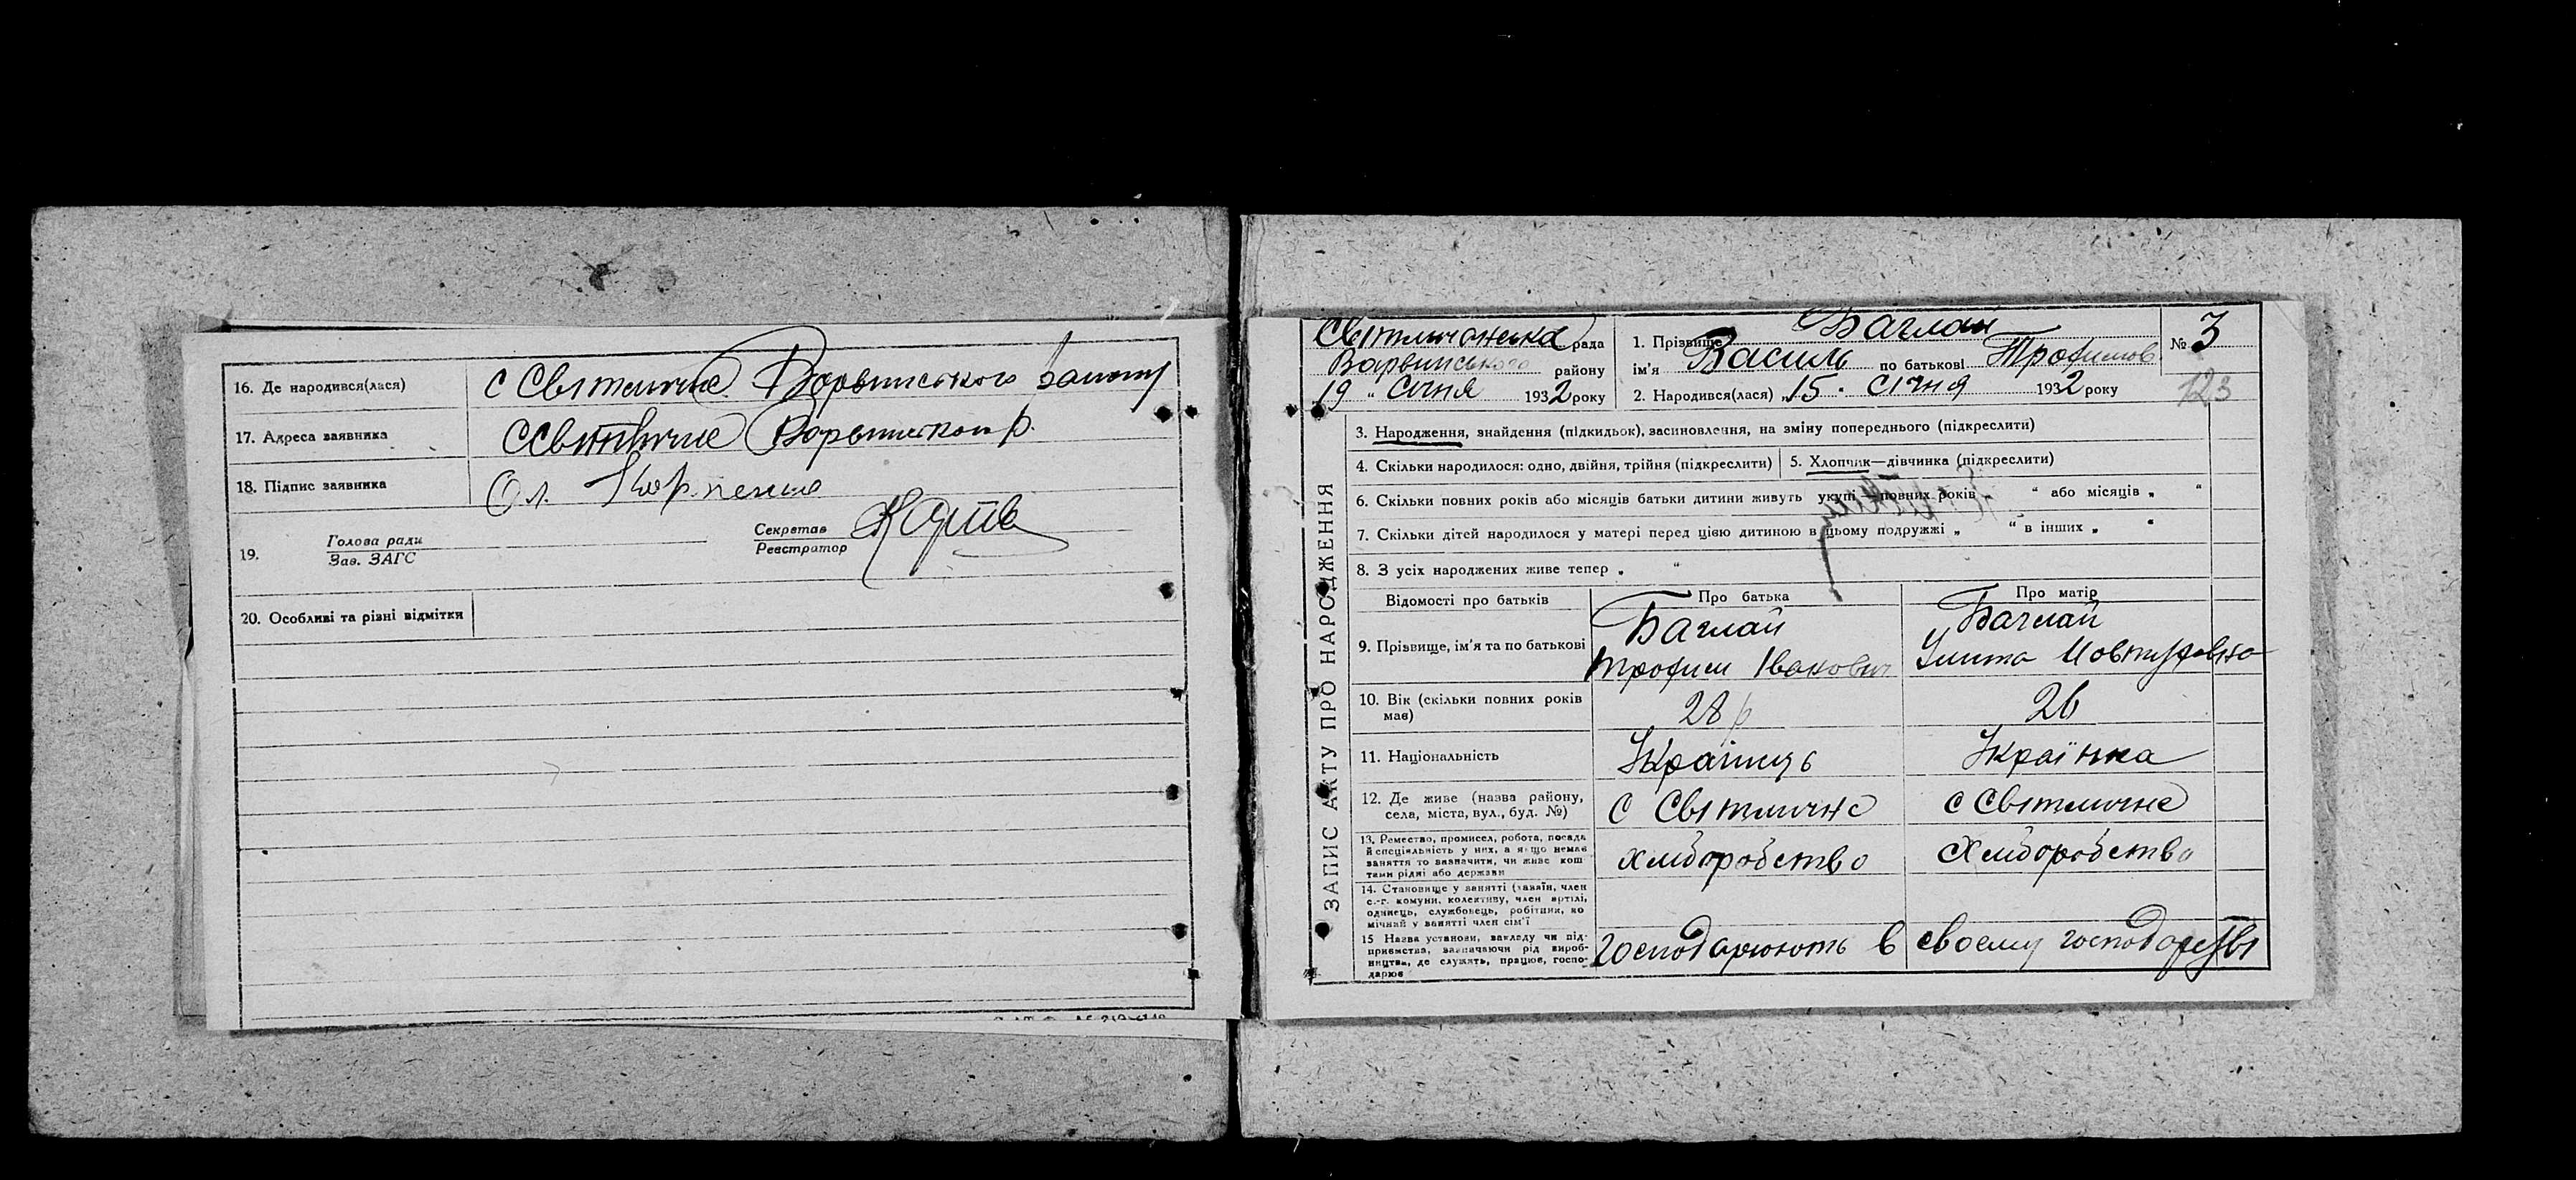 16. Де народився(лася) с Світличне Варвинського району
17. Адреса заявника с Світличне Варвинськ р.
18. Підпис заявника Ол.
19. Голова ради
Зав. ЗАГС
Секретав
Реєстратор
20. Особливі та різні відмітки
ЗАПИС АКТУ ПРО НАРОДЖЕННЯ
Світличанська рада
Варвинського району
19 " Січня 1932 року
1. Прізвище Баглай
ім'я Василь по батькові Трофимов.
2. Народився(лася) „15. Січня 1932 року
№ 3
123
3. Народження, знайдення (підкидьок), засиновлення, на зміну попереднього (підкреслити)
4. Скільки народилося: одно, двійня, трійня (підкреслити)
5. Хлопчик—дівчинка (підкреслити)
6. Скільки повних років або місяців батьки дитини живуть укупі—повних років " або місяців „ "
7. Скільки дітей народилося у матері перед цією дитиною в цьому подружжі „ " в інших „ "
8. З усіх народжених живе тепер „ "
Відомості про батьків
Про батька
Про матір
9. Прізвище, ім'я та по батькові
Баглай
Трофим Іванович
Баглай
Улита
10. Вік (скільки повних років має)
28 р
26
11. Національність
Українць
Українка
12. Де живе (назва району,
села, міста, вул., буд. №)
с Світличне
с Світличне
13. Ремество, промисел, робота, посада
й спеціяльність у них, а якщо немає
заняття то зазначити, чи живе кош
тами рідні або держави
хліборобство
Хліборобство
14. Становище у занятті (хазяїн, член
с.-г. комуни, колективу, член артілі,
одинець, службовець, робітник, по
мічний у занятті член сім'ї
15 Назва установи, закладу чи під-
приємства, зазначаючи рід вироб-
ництва, де служить, працює, госпо-
дарює
господарюють в своему господарстві